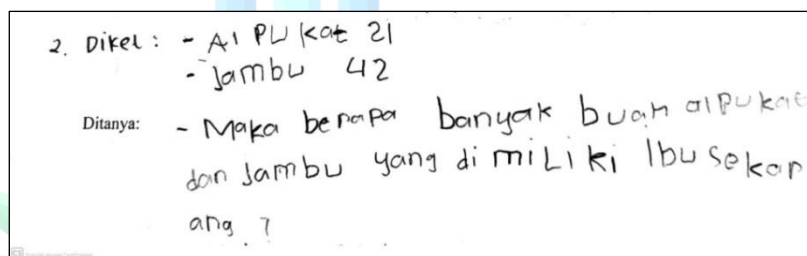 2. Dikel : - Alpukat 21
- Jambu 42
Ditanya: - Maka berapa banyak buah alpukat
dan Jambu yang di miliki Ibu sekar
ang ?